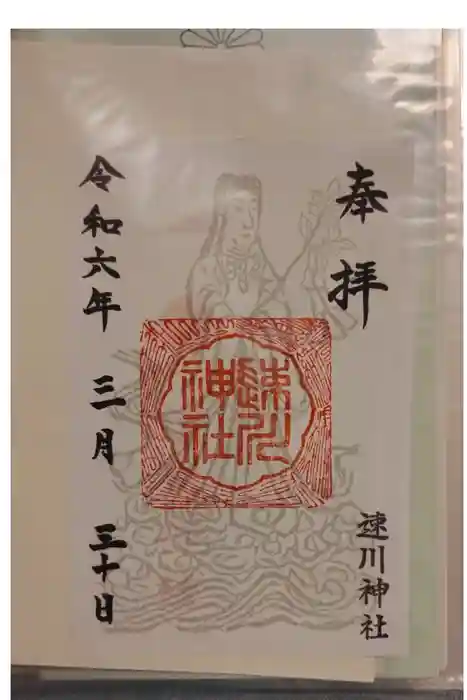 奉拝
速川神社
速川神社
令和六年 三月 三十日